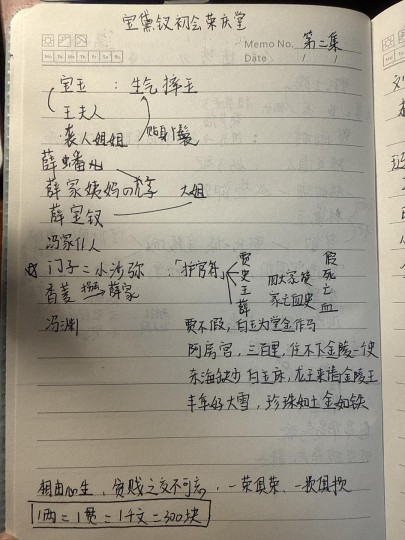 宝黛钗初会荣庆堂
Memo No. 第二集
Mo Tu We Th Fr Sa Su
Date / /
宝玉 : 生气摔玉
王夫人
袭人姐姐 贴身丫鬟
薛蟠
薛家姨妈の儿子 大姐
薛宝钗
冯家仆人
☆ 门子=小沙弥 :「护官符」 贾 史 王 薛 四大家族 家亡血史 假 死 亡 血
香菱 拐 → 薛家
冯渊
贾不假,白玉为堂金作马
阿房宫,三百里,住不下金陵一史
东海缺少白玉床,龙王来请金陵王
丰年好大雪,珍珠如土金如铁
相由心生,贫贱之交不可忘,一荣俱荣、一损俱损
1两=1贯=1千文=300块